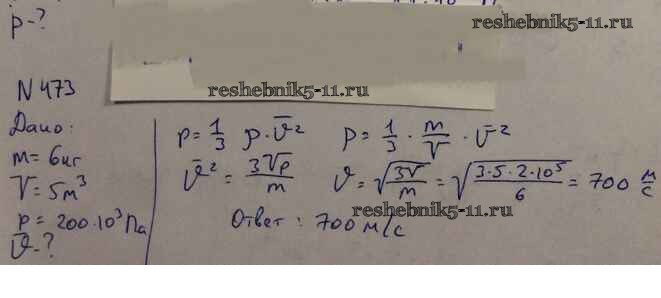 reshebnik5-11.ru
p-?
reshebnik5-11.ru
N 473
Дано:
m = 6кг
V = 5м³
p = 200·10³Па
v̄-?
p = 1/3 ρ·v̄² p = 1/3 · m/V · v̄²
v̄² = 3Vp/m v = √(3V/m) = √(3·5·2·10⁵/6) = 700 м/с
reshebnik5-11.ru
Ответ: 700 м/с